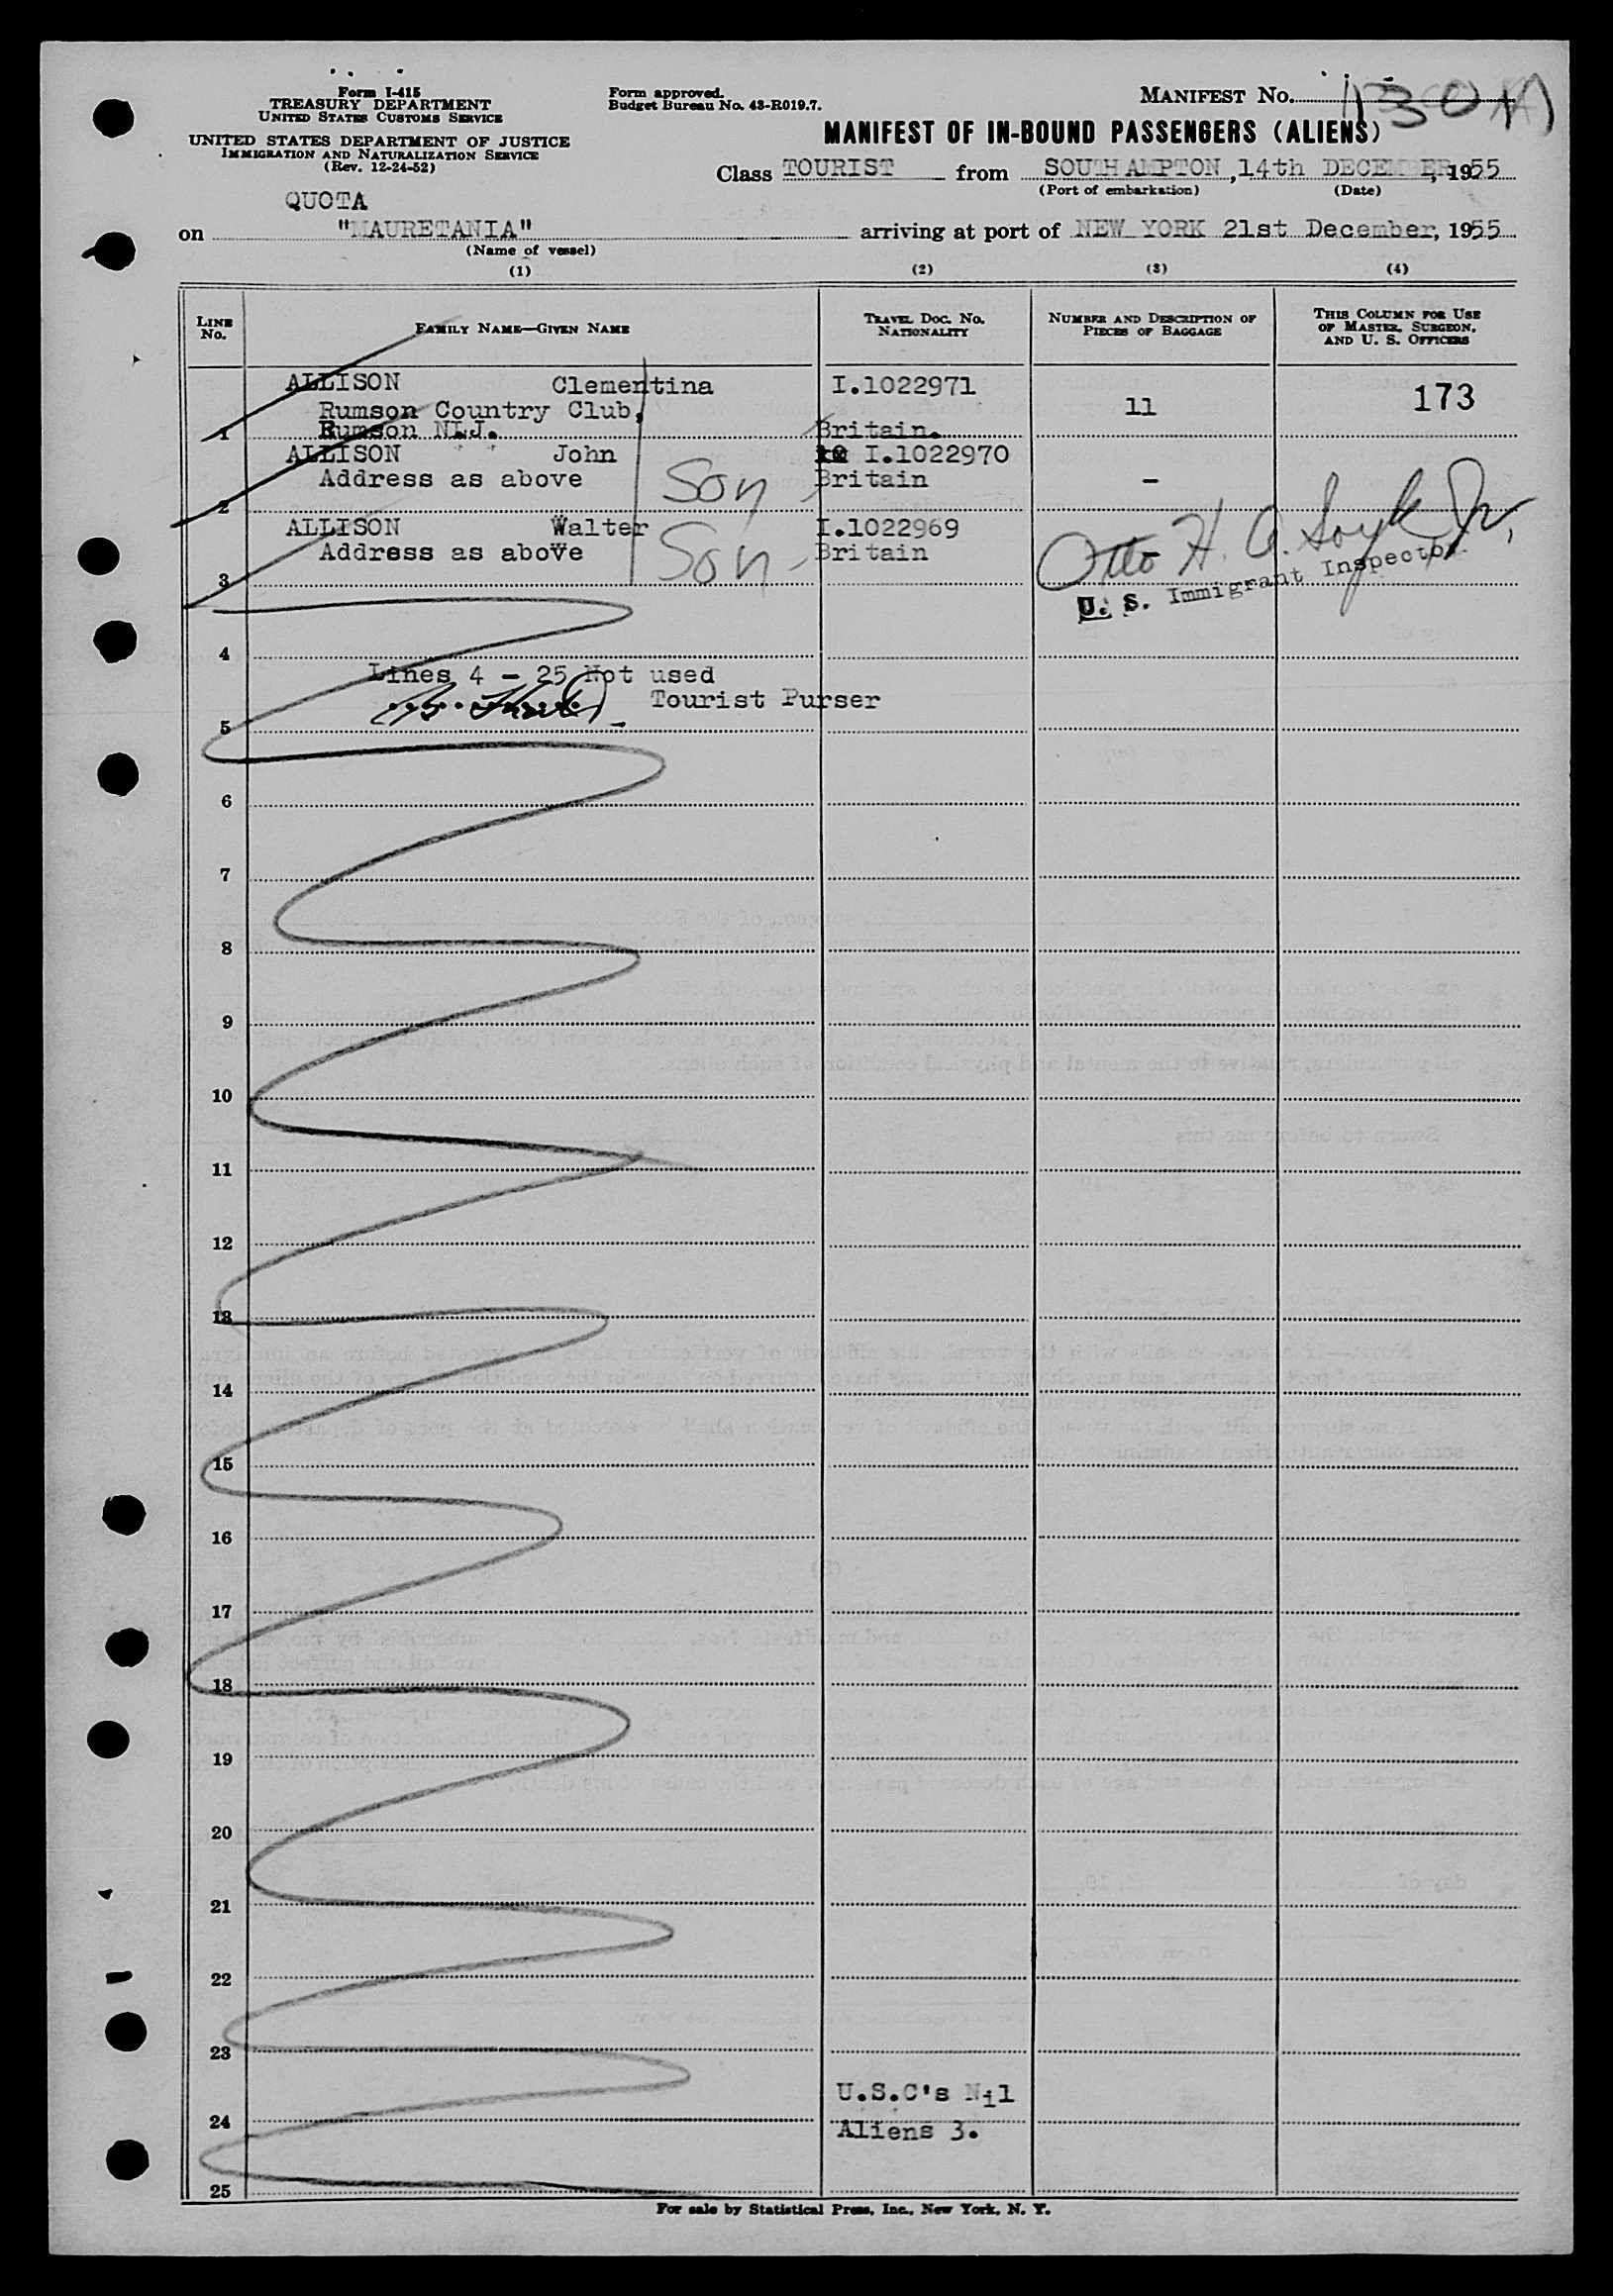 Form I-415
TREASURY DEPARTMENT
UNITED STATES CUSTOMS SERVICE
UNITED STATES DEPARTMENT OF JUSTICE
IMMIGRATION AND NATURALIZATION SERVICE
(Rev. 12-24-52)
Form approved.
Budget Bureau No. 43-R019.7.
MANIFEST No.
MANIFEST OF IN-BOUND PASSENGERS (ALIENS)
Class TOURIST from SOUTHAMPTON, 14th DECEMBER, 1955
(Port of embarkation) (Date)
QUOTA
on "MAURETANIA" arriving at port of NEW YORK 21st December, 1955
(Name of vessel)
(1) (2) (3) (4)
LINE No. FAMILY NAME—GIVEN NAME TRAVEL DOC. No. NATIONALITY NUMBER AND DESCRIPTION OF PIECES OF BAGGAGE THIS COLUMN FOR USE OF MASTER, SURGEON, AND U. S. OFFICERS
ALLISON Clementina I.1022971 11 173
Rumson Country Club,
1 Rumson N.J. Britain.
ALLISON John I.1022970
Address as above Son Britain -
2
ALLISON Walter I.1022969
Address as above Son - Britain
3
Otto H. Soyk Jr.
U. S. Immigrant Inspector
4
Lines 4 - 25 Not used
Tourist Purser
5
6
7
8
9
10
11
12
13
14
15
16
17
18
19
20
21
22
23
U.S.C's Nil
24
Aliens 3.
25
For sale by Statistical Press, Inc., New York, N. Y.